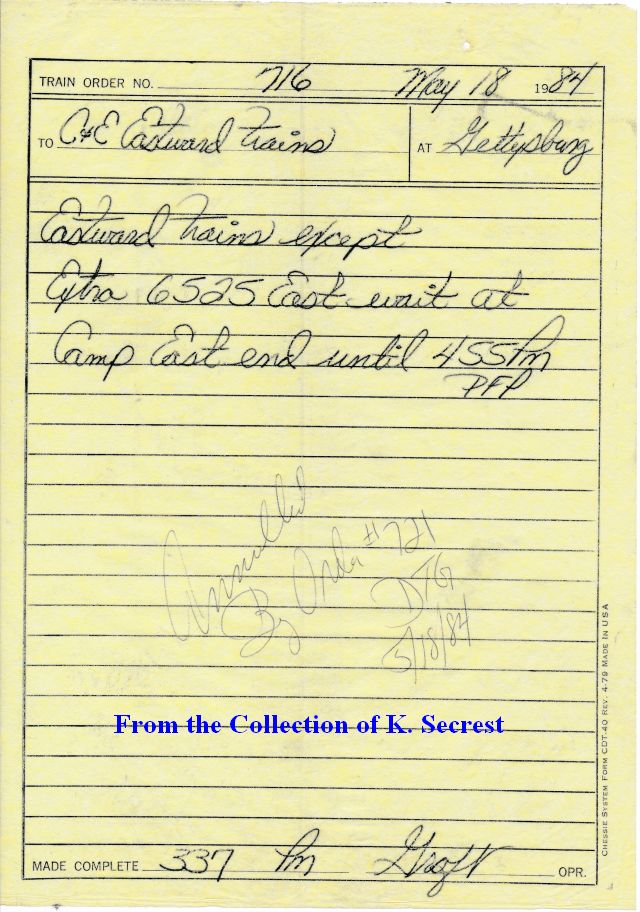 TRAIN ORDER NO. 716 May 18 1984
TO C&E Eastward trains AT Gettysburg
Eastward trains except
Extra 6525 East wait at
Camp East end until 455 Pm
PFP
Annulled
By Order #721
DTG
5/18/84
From the Collection of K. Secrest
MADE COMPLETE 337 Pm Groft OPR.
CHESSIE SYSTEM FORM CDT-40 REV. 4-79 MADE IN USA